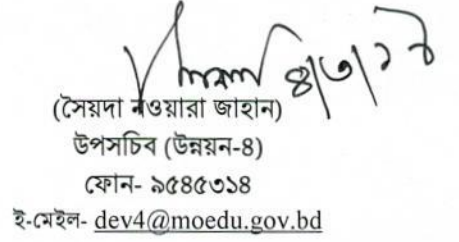 ৪/৩/১৮
(সৈয়দা নওয়ারা জাহান)
উপসচিব (উন্নয়ন-৪)
ফোন- ৯৫৪৫৩১৪
ই-মেইল- dev4@moedu.gov.bd